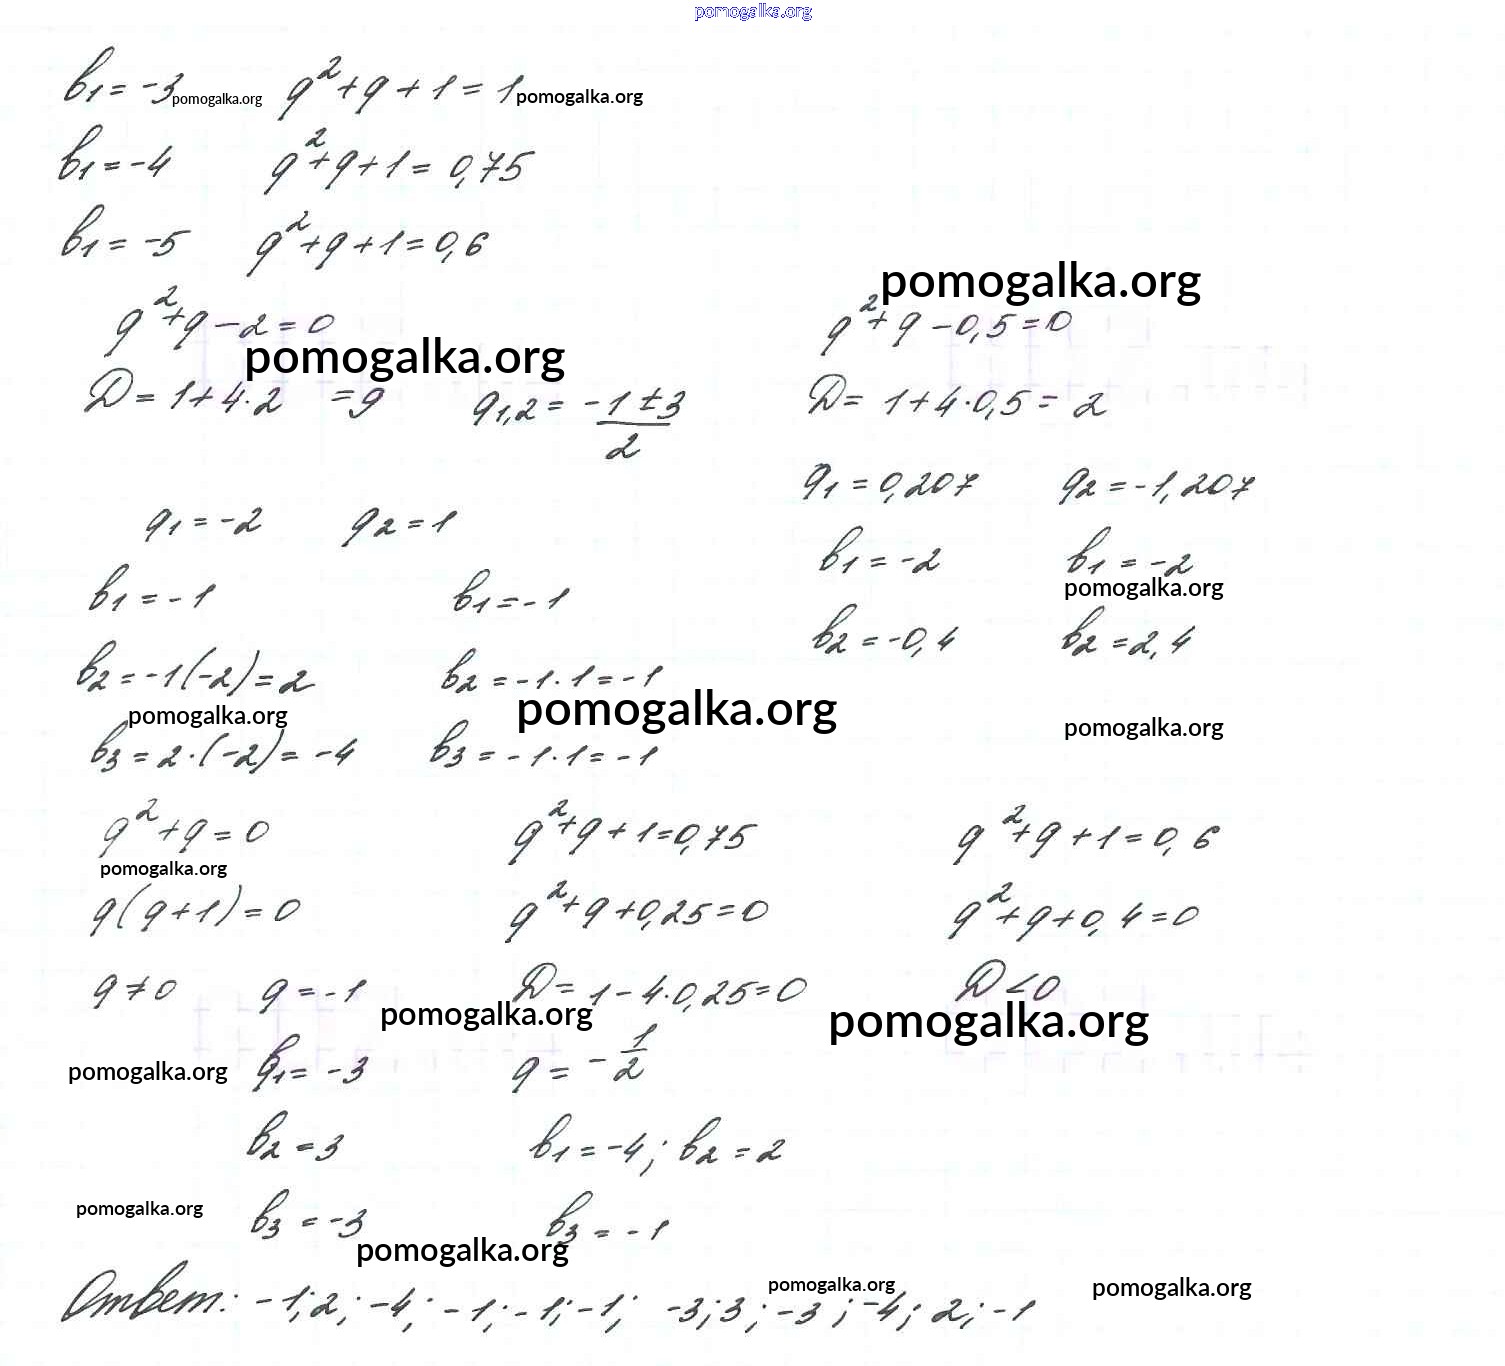 pomogalka.org
b₁ = -3 pomogalka.org q² + q + 1 = 1 pomogalka.org
b₁ = -4 q² + q + 1 = 0,75
b₁ = -5 q² + q + 1 = 0,6
pomogalka.org
q² + q - 2 = 0 q² + q - 0,5 = 0
pomogalka.org
D = 1 + 4·2 = 9 q₁,₂ = (-1 ± 3)/2 D = 1 + 4·0,5 = 2
q₁ = 0,207 q₂ = -1,207
q₁ = -2 q₂ = 1
b₁ = -2 b₁ = -2
pomogalka.org
b₁ = -1 b₁ = -1
b₂ = -0,4 b₂ = 2,4
b₂ = -1(-2) = 2 b₂ = -1·1 = -1
pomogalka.org pomogalka.org pomogalka.org
b₃ = 2·(-2) = -4 b₃ = -1·1 = -1
q² + q = 0 q² + q + 1 = 0,75 q² + q + 1 = 0,6
pomogalka.org
q(q+1) = 0 q² + q + 0,25 = 0 q² + q + 0,4 = 0
q ≠ 0 q = -1 D = 1 - 4·0,25 = 0 D < 0
pomogalka.org pomogalka.org
pomogalka.org b₁ = -3 q = -1/2
b₂ = 3 b₁ = -4; b₂ = 2
pomogalka.org b₃ = -3 b₃ = -1
pomogalka.org
pomogalka.org pomogalka.org
Ответ: -1; 2; -4; -1; -1; -1; -3; 3; -3; -4; 2; -1